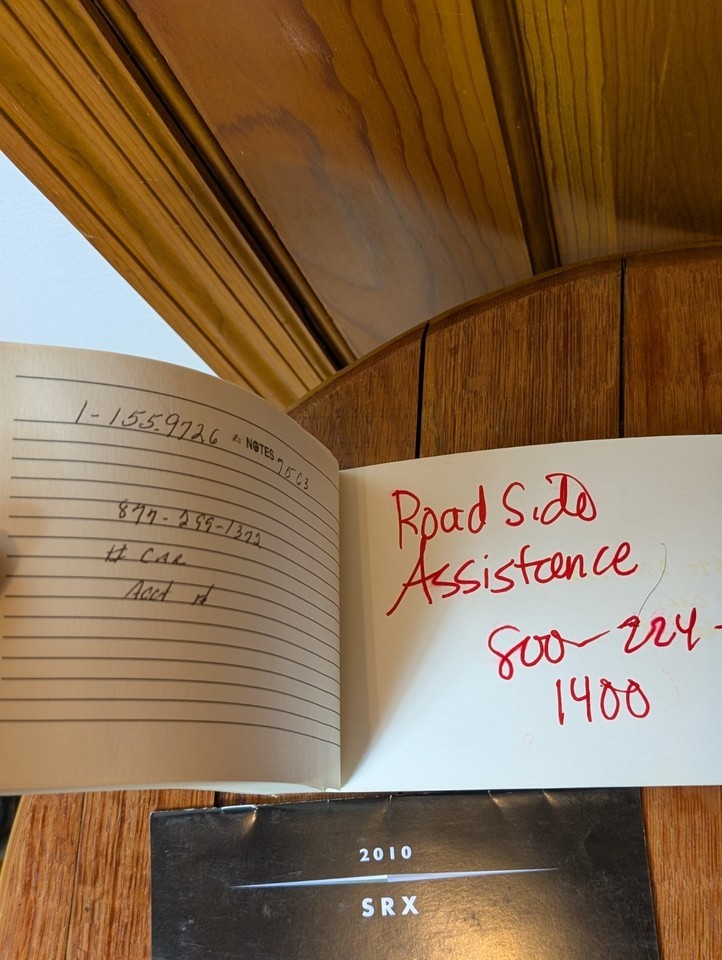 1-155.9726
NOTES
7563
877-299-1372
# CAR
Acct #
Road Side
Assistance
800-224-
1400
2010
SRX